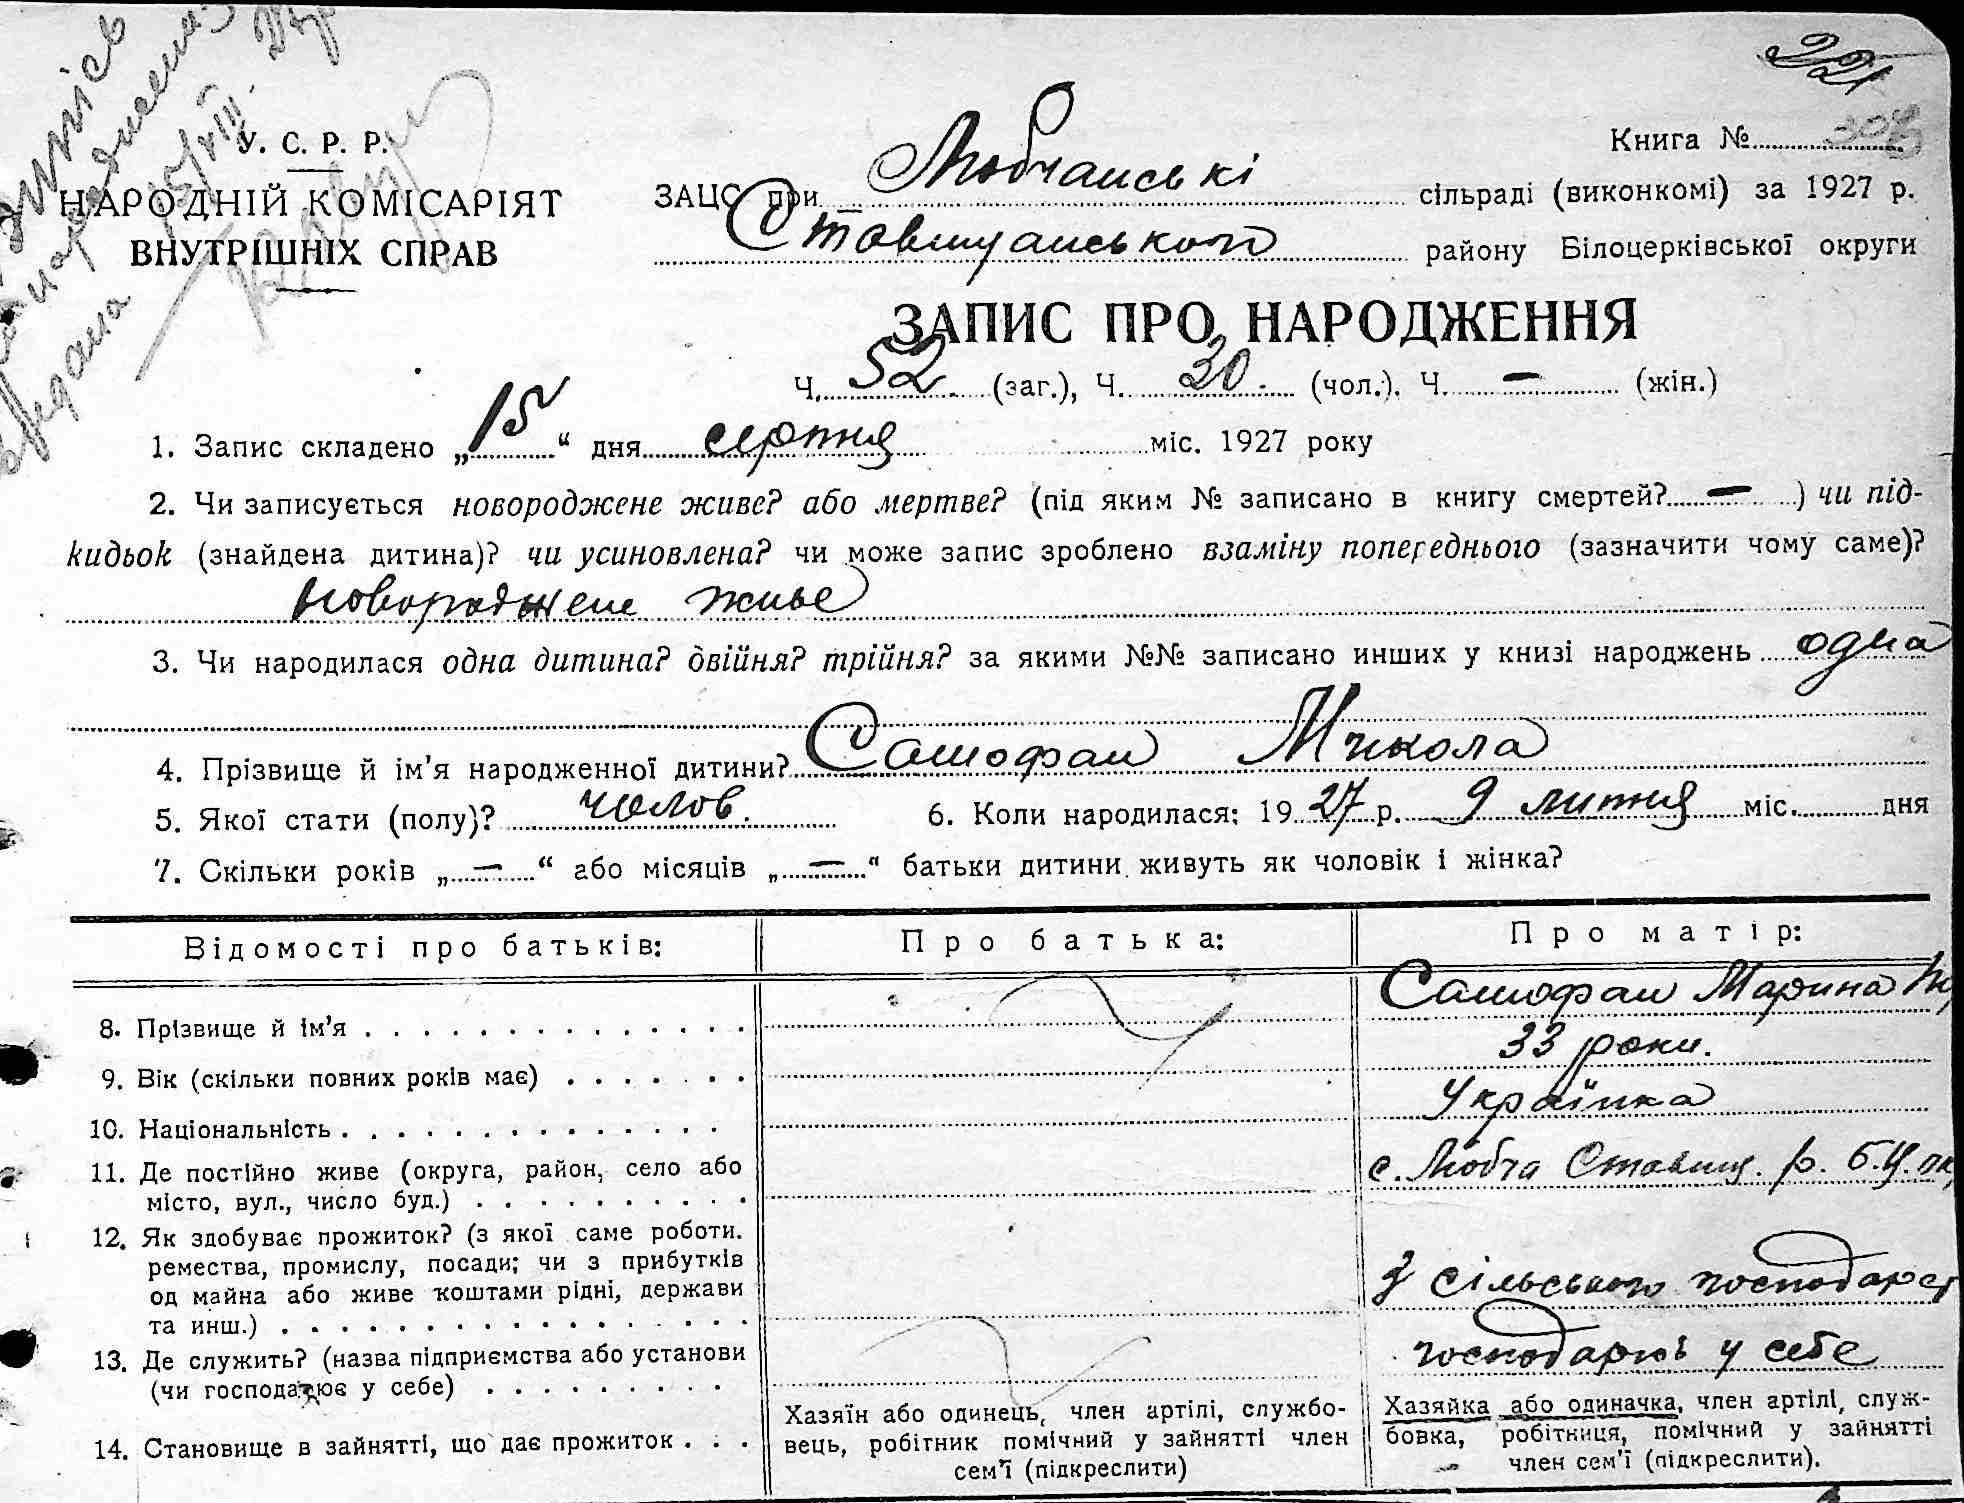 221
308
У. С. Р. Р.
НАРОДНІЙ КОМІСАРІЯТ
ВНУТРІШНІХ СПРАВ
Книга №
ЗАЦС при Любчанські сільраді (виконкомі) за 1927 р.
Ставищанського району Білоцерківської округи
ЗАПИС ПРО НАРОДЖЕННЯ
Ч. 52 (заг.), Ч. 30 (чол.). Ч. — (жін.)
1. Запис складено „15“ дня серпня міс. 1927 року
2. Чи записується новороджене живе? або мертве? (під яким № записано в книгу смертей? — ) чи під-
кидьок (знайдена дитина)? чи усиновлена? чи може запис зроблено взаміну попереднього (зазначити чому саме)?
новороджене живе
3. Чи народилася одна дитина? двійня? трійня? за якими №№ записано инших у книзі народжень одна
4. Прізвище й ім'я народженної дитини? Самофал Микола
5. Якої стати (полу)? чолов. 6. Коли народилася: 1927 р. 9 липня міс. дня
7. Скільки років „—“ або місяців „—“ батьки дитини живуть як чоловік і жінка?
Відомості про батьків: Про батька: Про матір:
8. Прізвище й ім'я Самофал Марина
9. Вік (скільки повних років має) 33 роки.
10. Національність Українка
11. Де постійно живе (округа, район, село або
місто, вул., число буд.) с. Любча Ставищ. р. Б.Ц. ок
12. Як здобуває прожиток? (з якої саме роботи.
ремества, промислу, посади; чи з прибутків
од майна або живе коштами рідні, держави
та инш.) З сільського господарст
13. Де служить? (назва підприємства або установи
(чи господарює у себе) господарює у себе
14. Становище в зайнятті, що дає прожиток
Хазяїн або одинець, член артілі, службо-
вець, робітник помічний у зайнятті член
сем'ї (підкреслити)
Хазяйка або одиначка, член артілі, служ-
бовка, робітниця, помічний у зайнятті
член сем'ї (підкреслити).